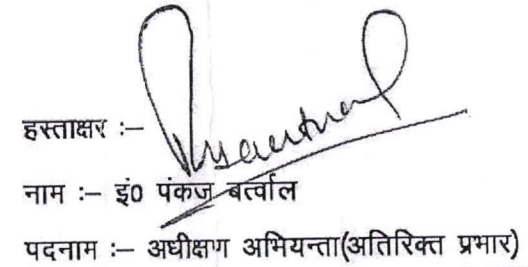 हस्ताक्षर :–
नाम :– इं0 पंकज बर्त्वाल
पदनाम :– अधीक्षण अभियन्ता(अतिरिक्त प्रभार)